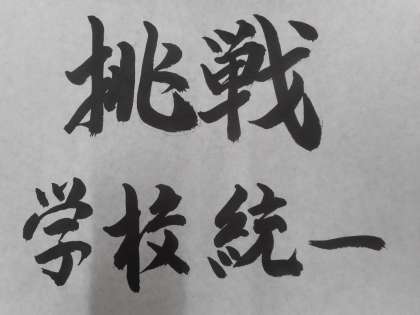 挑戦
学校統一